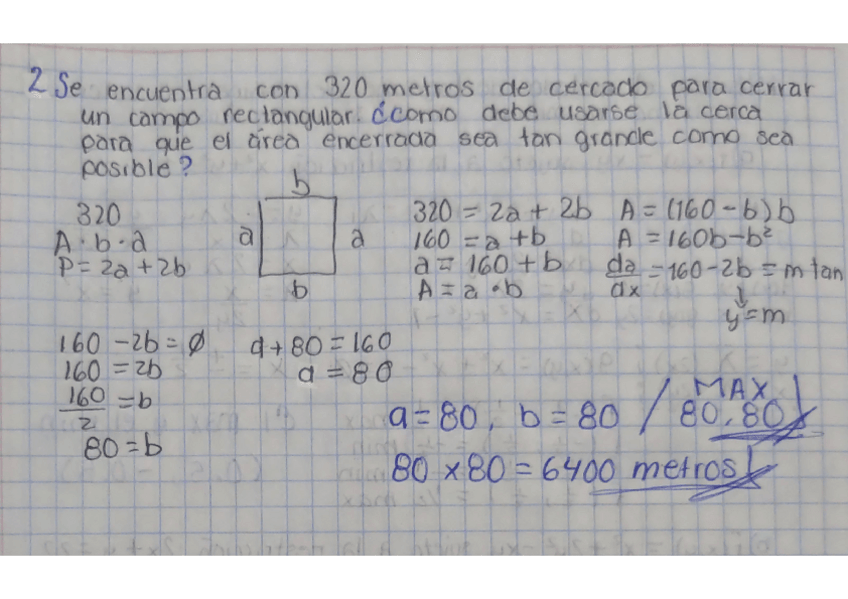 2 Se encuentra con 320 metros de cercado para cerrar
un campo rectangular. ¿como debe usarse la cerca
para que el área encerrada sea tan grande como sea
posible?
b
a
a
b
320
A・b・a
P = 2a + 2b
320 = 2a + 2b
160 = a + b
a = 160 + b
A = a・b
A = (160 - b) b
A = 160b - b²
da/dx = 160 - 2b = m tan
↓
y' = m
160 - 2b = 0
160 = 2b
160/2 = b
80 = b
a + 80 = 160
a = 80
a = 80, b = 80 / MAX 80, 80
80 x 80 = 6400 metros